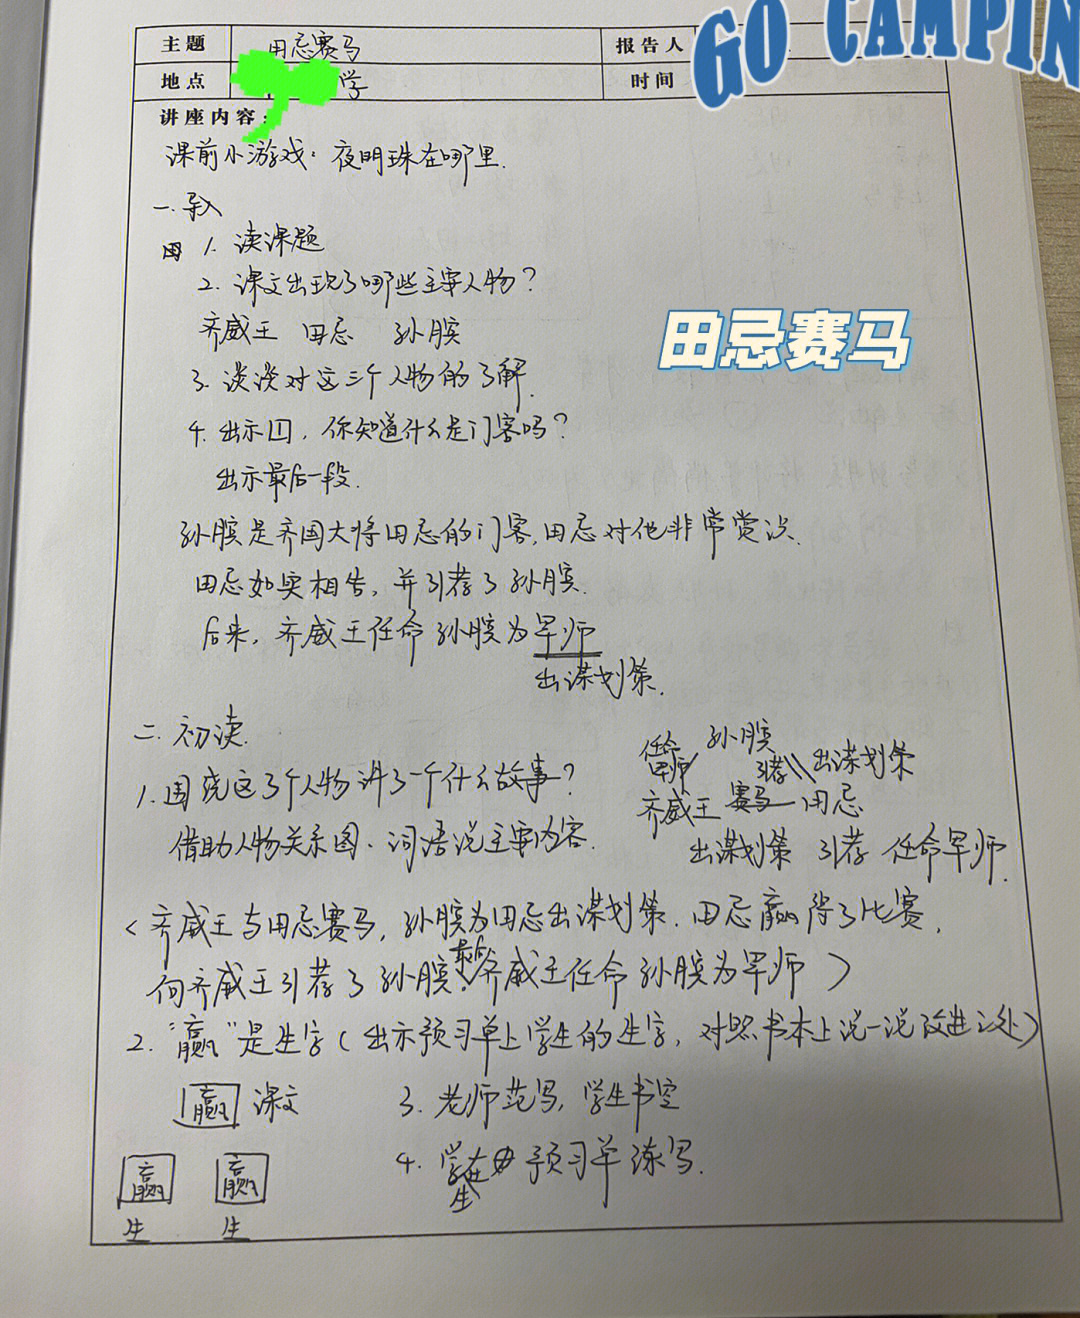 GO CAMPIN
主题 田忌赛马 报告人
地点 学 时间
讲座内容:
课前小游戏:夜明珠在哪里.
一.导入
1. 读课题
2. 课文出现了哪些主要人物?
齐威王 田忌 孙膑
田忌赛马
3. 谈谈对这三个人物的了解.
4. 出示①,你知道什么是门客吗?
出示最后一段.
孙膑是齐国大将田忌的门客,田忌对他非常赏识.
田忌如实相告,并引荐了孙膑.
后来,齐威王任命孙膑为军师
出谋划策.
二.初读.
1. 围绕这3个人物讲了一个什么故事?
借助人物关系图、词语说主要内容.
任命 孙膑
军师 引荐 出谋划策
齐威王 赛马 田忌
出谋划策 引荐 任命军师.
<齐威王与田忌赛马,孙膑为田忌出谋划策.田忌赢得了比赛,
向齐威王引荐了孙膑,最后齐威王任命孙膑为军师)
2. "赢"是生字(出示预习单上学生的生字,对照书本上说一说改进之处)
赢 课文 3. 老师范写,学生书空
赢 赢 4. 学生在预习单练写.
生 生